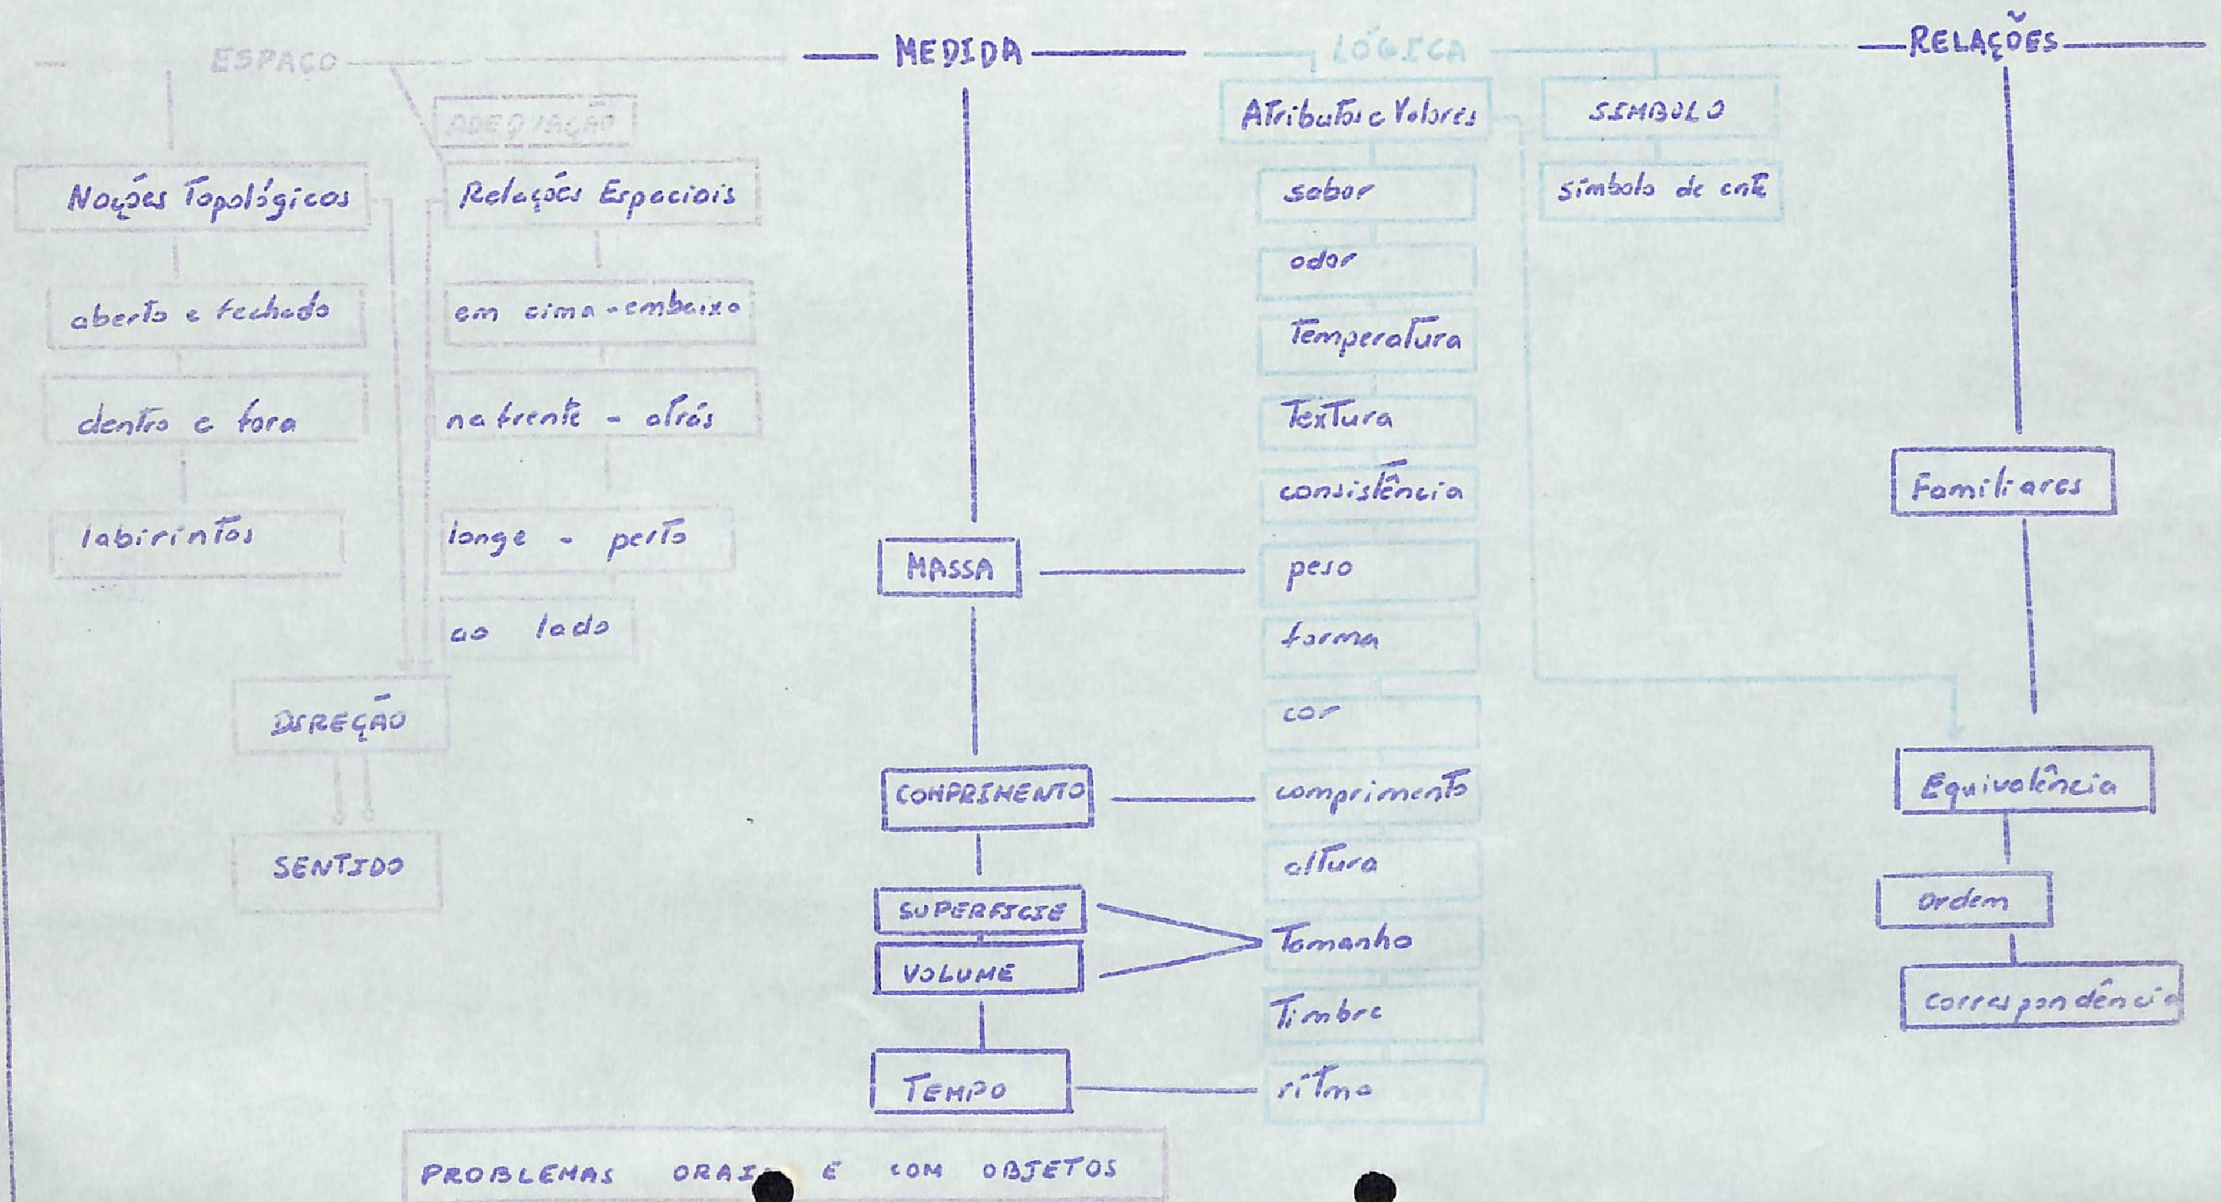 ESPAÇO
MEDIDA
LÓGICA
RELAÇÕES
ADEQUAÇÃO
Noções Topológicas
aberto e fechado
dentro e fora
labirintos
Relações Espaciais
em cima - embaixo
na frente - atrás
longe - perto
ao lado
DIREÇÃO
SENTIDO
MASSA
COMPRIMENTO
SUPERFICIE
VOLUME
TEMPO
Atributos e Valores
sabor
odor
Temperatura
Textura
consistência
peso
forma
cor
comprimento
altura
Tamanho
Timbre
ritmo
SIMBOLO
símbolo de ente
Familiares
Equivalência
Ordem
Correspondência
PROBLEMAS ORAIS E COM OBJETOS